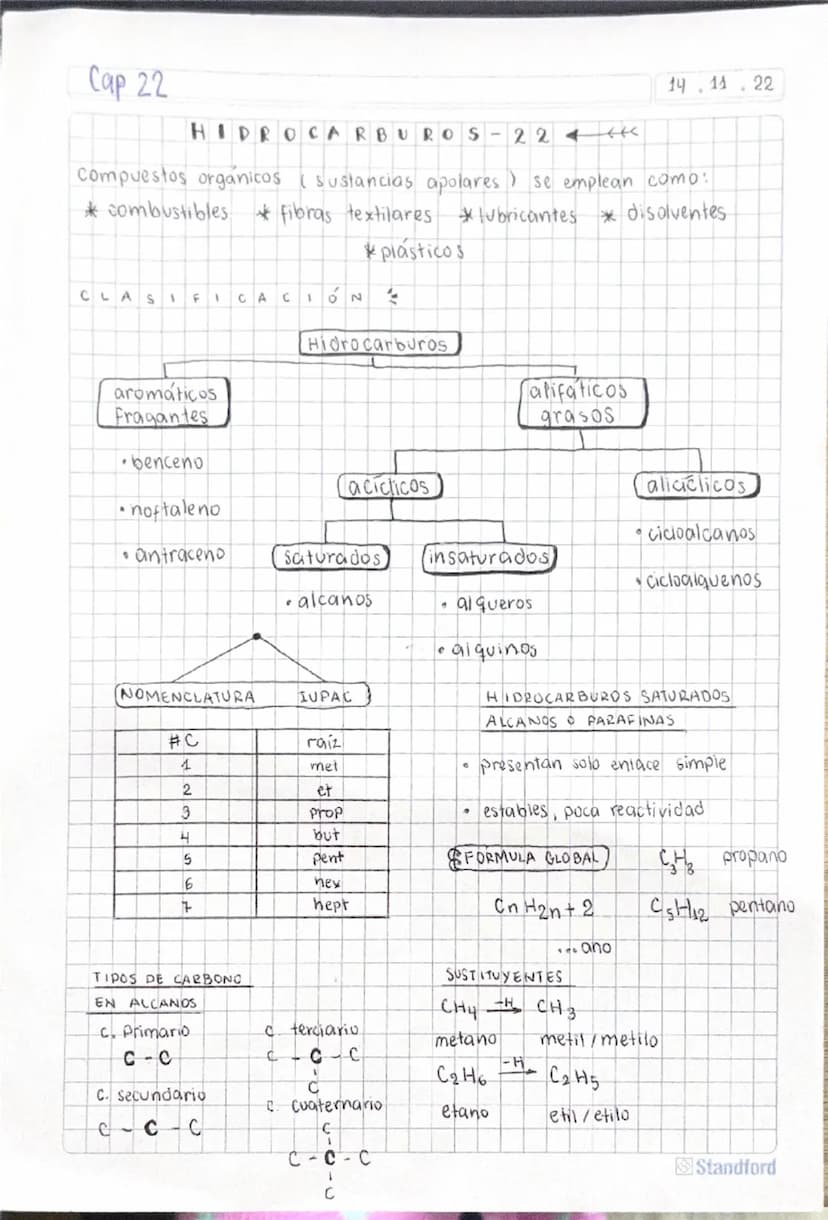 Cap 22
14 . 11 . 22
HIDROCARBUROS-22
Compuestos orgánicos (sustancias apolares) se emplean como:
* combustibles * fibras textilares * lubricantes * disolventes
* plásticos
CLASIFICACIÓN
Hidrocarburos
aromáticos
Fragantes
alifáticos
grasos
• benceno
• noftaleno
• antraceno
acíclicos
alicíclicos
• cicloalcanos
• cicloalquenos
saturados
insaturados
• alcanos
• alqueros
• alquinos
NOMENCLATURA IUPAC
#C raíz
1 met
2 et
3 prop
4 but
5 pent
6 hex
7 hept
HIDROCARBUROS SATURADOS
ALCANOS O PARAFINAS
• presentan solo enlace simple
• estables, poca reactividad
FORMULA GLOBAL C3H8 propano
CnH2n+2 C5H12 pentano
...ano
TIPOS DE CARBONO
EN ALCANOS
c. primario
C - C
c. secundario
C - C - C
c. terciario
C - C - C
C
c. cuaternario
C
C - C - C
C
SUSTITUYENTES
CH4 -H CH3
metano metil/metilo
C2H6 -H C2H5
etano etil/etilo
Standford